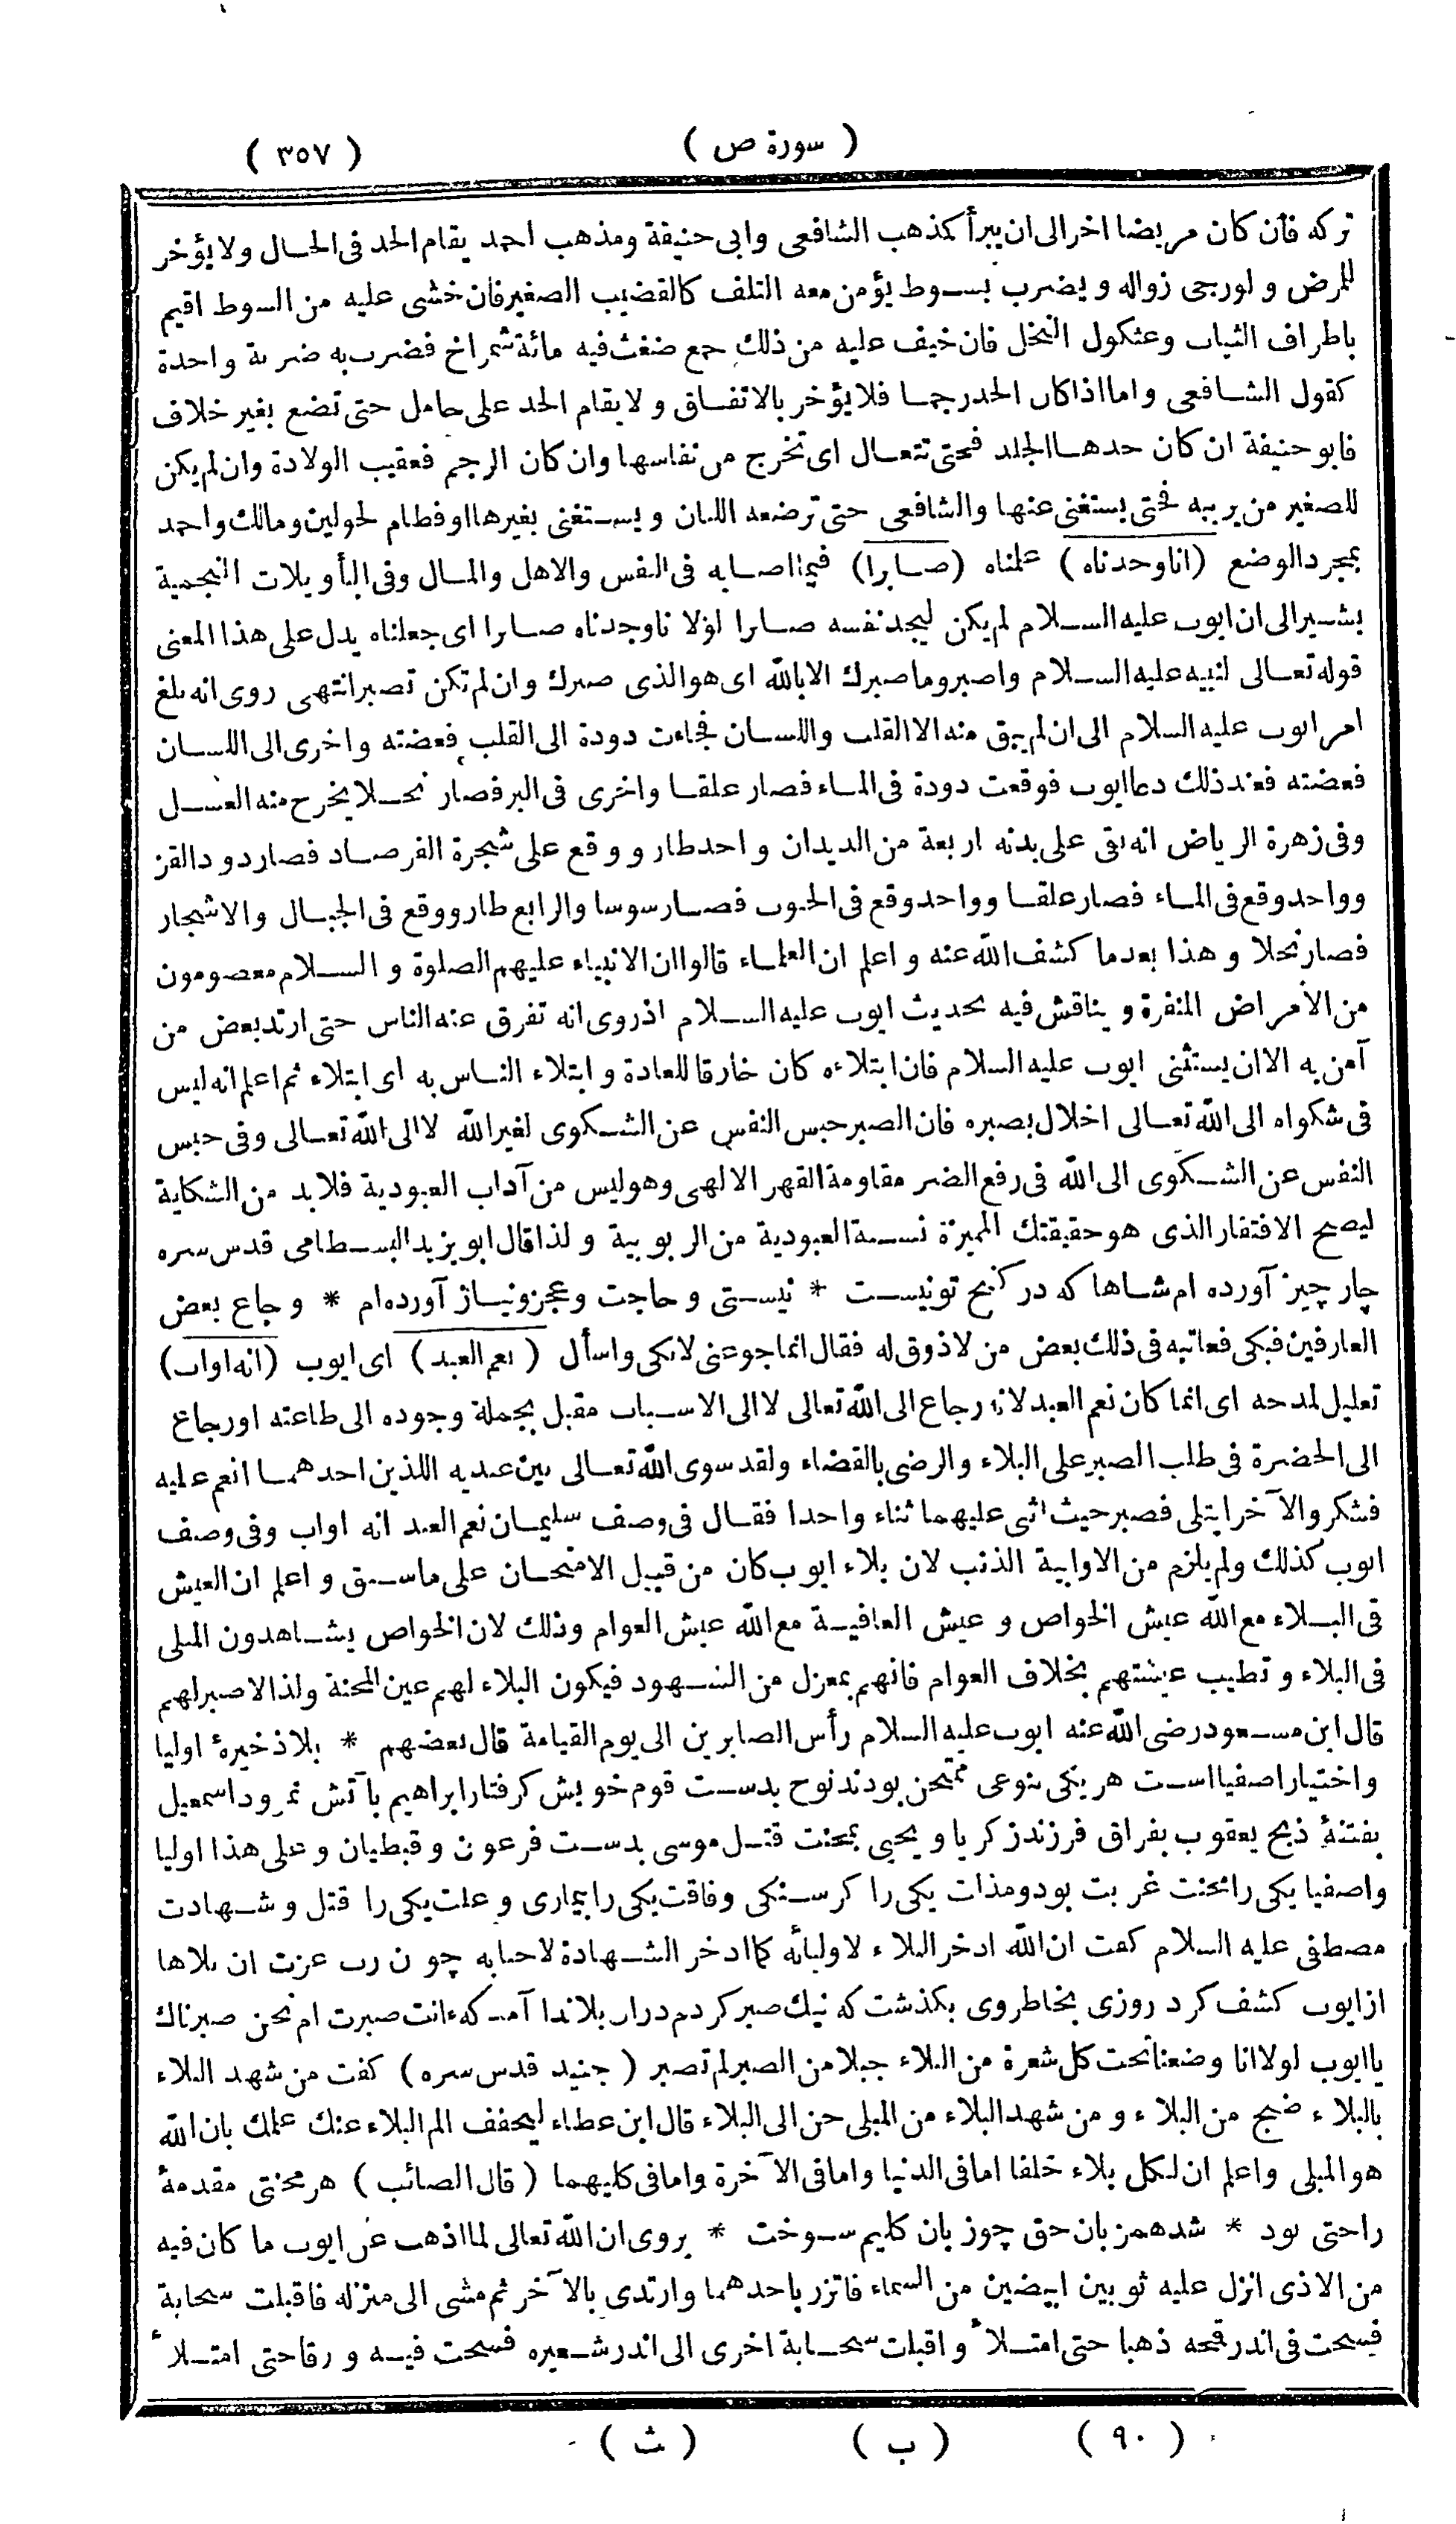 ( سورة ص ) ( ٣٥٧ )
تركه فان كان مريضا اخر الى ان يبرأ كمذهب الشافعى وابى حنيفة ومذهب احمد يقام الحد فى الحال ولا يؤخر
للمرض ولو رجى زواله ويضرب بسوط يؤمن معه التلف كالقضيب الصغير فان خشى عليه من السوط اقيم
باطراف الثياب وعثكول النخل فان خيف عليه من ذلك جمع ضغث فيه مائة شمراخ فضرب به ضربة واحدة
كقول الشافعى واما اذا كان الحد رجما فلا يؤخر بالاتفاق ولا يقام الحد على حامل حتى تضع بغير خلاف
فابو حنيفة ان كان حدها الجلد فحتى تتعال اى تخرج من نفاسها وان كان الرجم فعقيب الولادة وان لم يكن
للصغير من يربيه فحتى يستغنى عنها والشافعى حتى ترضعه اللبان ويستغنى بغيرها او فطام لحولين ومالك واحمد
بمجرد الوضع ( انا وجدناه ) علمناه ( صابرا ) فيما اصابه فى النفس والاهل والمال وفى التأويلات النجمية
يشير الى ان ايوب عليه السلام لم يكن ليجد نفسه صابرا لولا انا وجدناه صابرا اى جعلناه يدل على هذا المعنى
قوله تعالى لنبيه عليه السلام واصبر وما صبرك الا بالله اى هو الذى صبرك وان لم تكن تصبر انتهى روى انه بلغ
امر ايوب عليه السلام الى ان لم يبق منه الا القلب واللسان فجاءت دودة الى القلب فعضته واخرى الى اللسان
فعضته فعند ذلك دعا ايوب فوقعت دودة فى الماء فصار علقا واخرى فى البر فصار نحلا يخرج منه العسل
وفى زهرة الرياض انه بقى على بدنه اربعة من الديدان واحد طار ووقع على شجرة الفرصاد فصار دود القز
وواحد وقع فى الماء فصار علقا وواحد وقع فى الحبوب فصار سوسا والرابع طار ووقع فى الجبال والاشجار
فصار نحلا وهذا بعد ما كشف الله عنه واعلم ان العلماء قالوا ان الانبياء عليهم الصلوة والسلام معصومون
من الامراض المنفرة ويناقش فيه بحديث ايوب عليه السلام اذ روى انه تفرق عنه الناس حتى ارتد بعض من
آمن به الا ان يستثنى ايوب عليه السلام فان ابتلاءه كان خارقا للعادة وابتلاء الناس به اى ابتلاء ثم اعلم انه ليس
فى شكواه الى الله تعالى اخلال بصبره فان الصبر حبس النفس عن الشكوى لغير الله لا الى الله تعالى وفى حبس
النفس عن الشكوى الى الله فى رفع الضر مقاومة القهر الالهى وهو ليس من آداب العبودية فلا بد من الشكاية
ليصح الافتقار الذى هو حقيقتك المميزة نسبة العبودية من الربوبية ولذا قال ابو يزيد البسطامى قدس سره
چار چيز آورده ام شاها كه در كنج تونيست * نيستى وحاجت وعجز ونياز آورده ام * وجاع بعض
العارفين فبكى فعاتبه فى ذلك بعض من لا ذوق له فقال انما جوعنى لابكى واسأل ( نعم العبد ) اى ايوب ( انه اواب )
تعليل لمدحه اى انما كان نعم العبد لانه رجاع الى الله تعالى لا الى الاسباب مقبل بجملة وجوده الى طاعته او رجاع
الى الحضرة فى طلب الصبر على البلاء والرضى بالقضاء ولقد سوى الله تعالى بين عبديه اللذين احدهما انعم عليه
فشكر والآخر ابتلى فصبر حيث اثنى عليهما ثناء واحدا فقال فى وصف سليمان نعم العبد انه اواب وفى وصف
ايوب كذلك ولم يلزم من الاوابية الذنب لان بلاء ايوب كان من قبيل الامتحان على ما سبق واعلم ان العيش
فى البلاء مع الله عيش الخواص وعيش العافية مع الله عيش العوام وذلك لان الخواص يشاهدون المبلى
فى البلاء وتطيب عيشتهم بخلاف العوام فانهم بمعزل من الشهود فيكون البلاء لهم عين المحنة ولذا لا صبر لهم
قال ابن مسعود رضى الله عنه ايوب عليه السلام رأس الصابرين الى يوم القيامة قال بعضهم * بلا ذخيرۀ اوليا
واختيار اصفيا است هر يكى بنوعى ممتحن بودند نوح بدست قوم خويش كرفتار ابراهيم بآتش نمرود اسمعيل
بفتنۀ ذبح يعقوب بفراق فرزند زكريا ويحيى بمحنت قتل موسى بدست فرعون وقبطيان وعلى هذا اوليا
واصفيا يكى را محنت غربت بود ومذلت يكى را كرسنكى وفاقت يكى را بيمارى وعلت يكى را قتل وشهادت
مصطفى عليه السلام كفت ان الله ادخر البلاء لاوليائه كما ادخر الشهادة لاحبابه چون رب عزت ان بلاها
از ايوب كشف كرد روزى بخاطر وى بكذشت كه نيك صبر كردم دران بلا ندا آمد كه ءانت صبرت ام نحن صبرناك
يا ايوب لولا انا وضعنا تحت كل شعرة من البلاء جبلا من الصبر لم تصبر ( جنيد قدس سره ) كفت من شهد البلاء
بالبلاء ضج من البلاء ومن شهد البلاء من المبلى حن الى البلاء قال ابن عطاء ليخفف الم البلاء عنك علمك بان الله
هو المبلى واعلم ان لكل بلاء خلفا اما فى الدنيا واما فى الآخرة واما فى كليهما ( قال الصائب ) هر محنتى مقدمۀ
راحتى بود * شد همزبان حق چو زبان كليم سوخت * يروى ان الله تعالى لما اذهب عن ايوب ما كان فيه
من الاذى انزل عليه ثوبين ابيضين من السماء فاتزر باحدهما وارتدى بالآخر ثم مشى الى منزله فاقبلت سحابة
فسحت فى اندر قمحه ذهبا حتى امتلأ واقبلت سحابة اخرى الى اندر شعيره فسحت فيه ورقا حتى امتلأ
( ٩٠ ) ( ب ) ( ث )